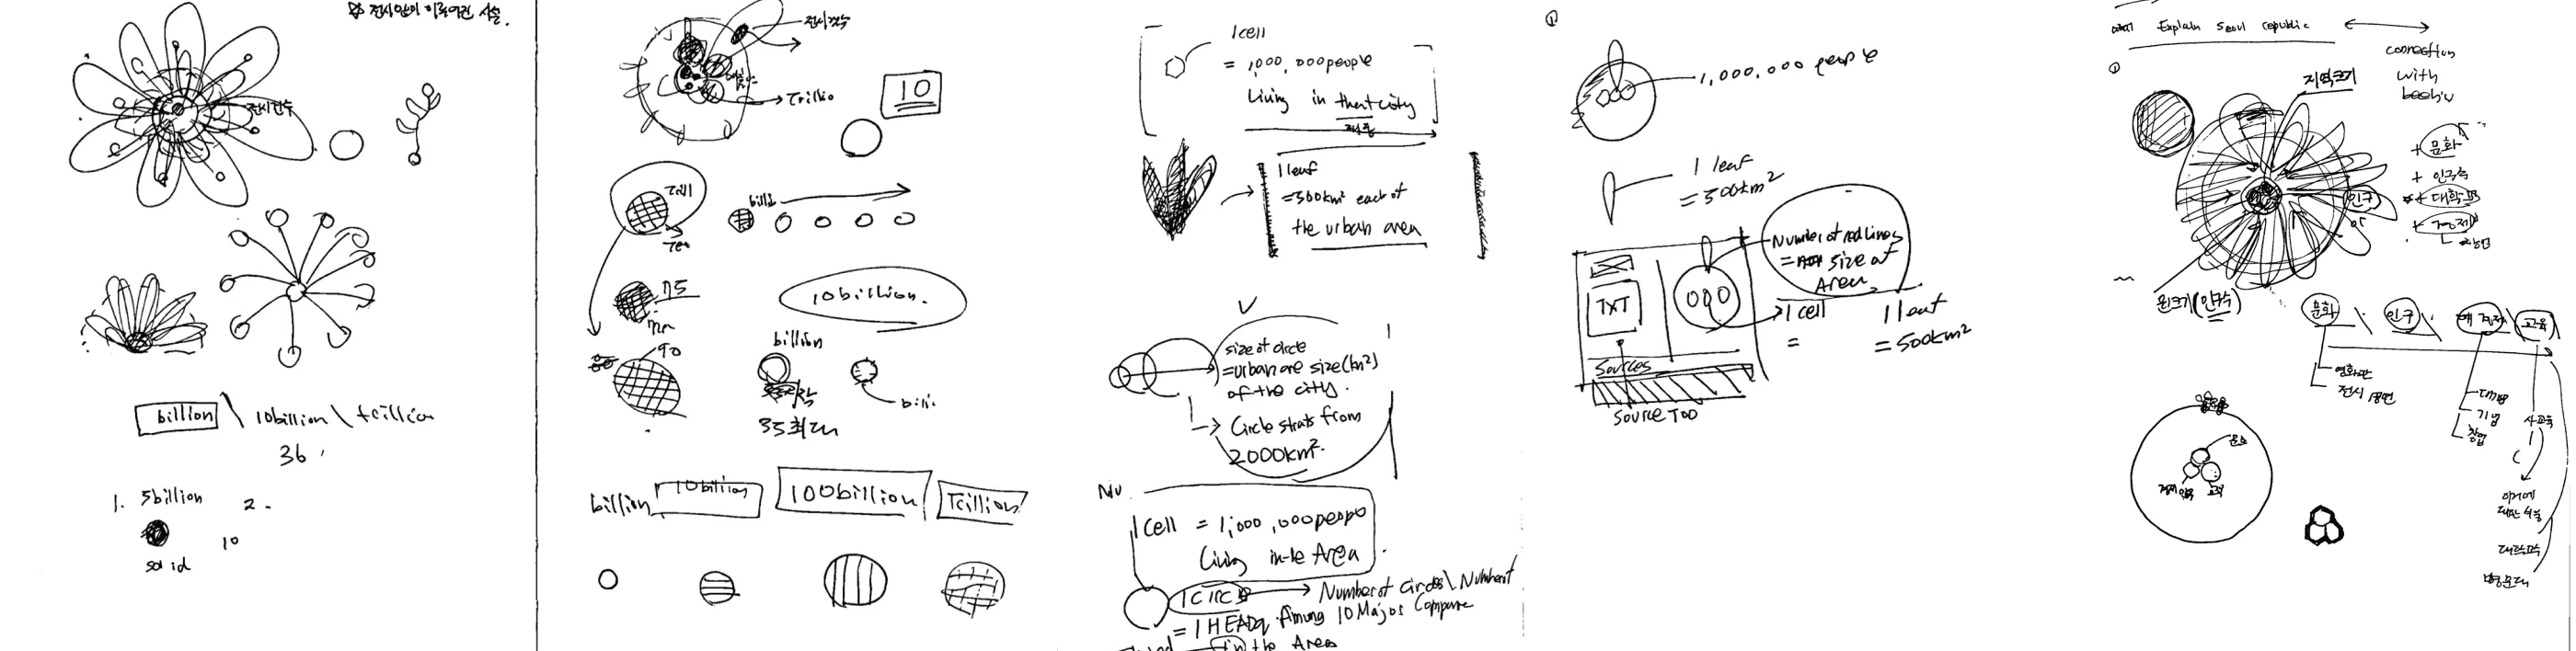 전시건수
billion \ 10billion \ trillion
36
1. 5billion
2.
10
solid
전시건수
Trillio
10
Trill
billi
75
10billion.
90
billion
billi.
35최대
billion
10billion
100billion
Trillion
1cell
= 1,000,000people
Living in that city
1leaf
=500km² each of
the urban area
size of circle
=urban are size(km²)
of the city.
Circle strats from
2000km².
1 cell = 1,000,000 peopo
Living in Area
1 CIRC
Number of circles \ Number of
= 1 HEADq Among 10 Major Compane
in the Area
①
1,000,000 people
1 leaf
= 500km²
Number of red lines
= size of
Area
TXT
000
1 cell
=
1 leaf
= 500km²
Sources
Source TOO
Explain Seoul republic
connection
with
지역크기
+ 문화
+ 인구수
+ 대학교
+ 경제
인구
원크기(인구수)
문화
인구
경제
교육
영화관
전시 공연
대기업
기업
창업
사교육
대학교수